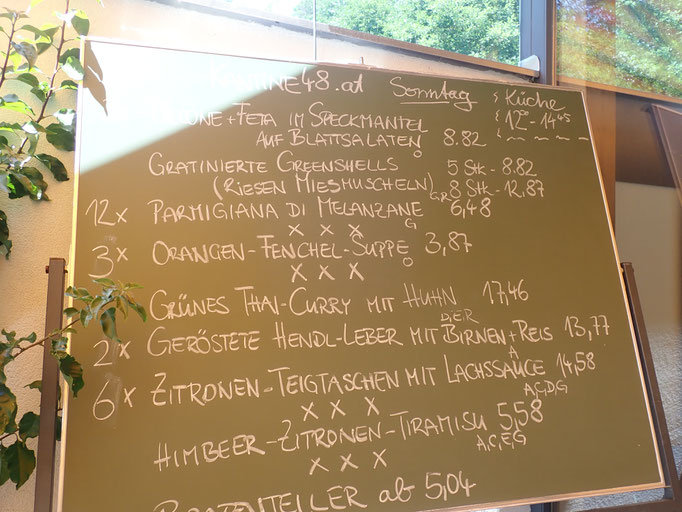 48.at Sonntag Küche
+ FETA IM SPECKMANTEL 12⁰⁰-14⁴⁵
AUF BLATTSALATEN 8.82
O
GRATINIERTE GREENSHELLS 5 Stk - 8.82
(RIESEN MIESMUSCHELN) 8 Stk - 12,87
G,R
12x PARMIGIANA DI MELANZANE 6,48
G
x x x
3x ORANGEN-FENCHEL-SUPPE 3,87
O
x x x
GRÜNES THAI-CURRY MIT HUHN 17,46
D,E,R
2x GERÖSTETE HENDL-LEBER MIT BIRNEN + REIS 13,77
A
6x ZITRONEN-TEIGTASCHEN MIT LACHSSAUCE 14,58
A,C,D,G
x x x
HIMBEER-ZITRONEN-TIRAMISU 5,58
A,C,E,G
x x x
ab 5,04